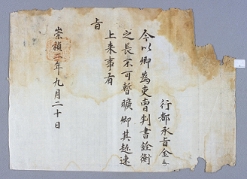 行都承旨金
今以卿為吏曹判書銓衡
之長不可暫曠卿其趁速
上来事有
旨
崇禎二年九月二十日